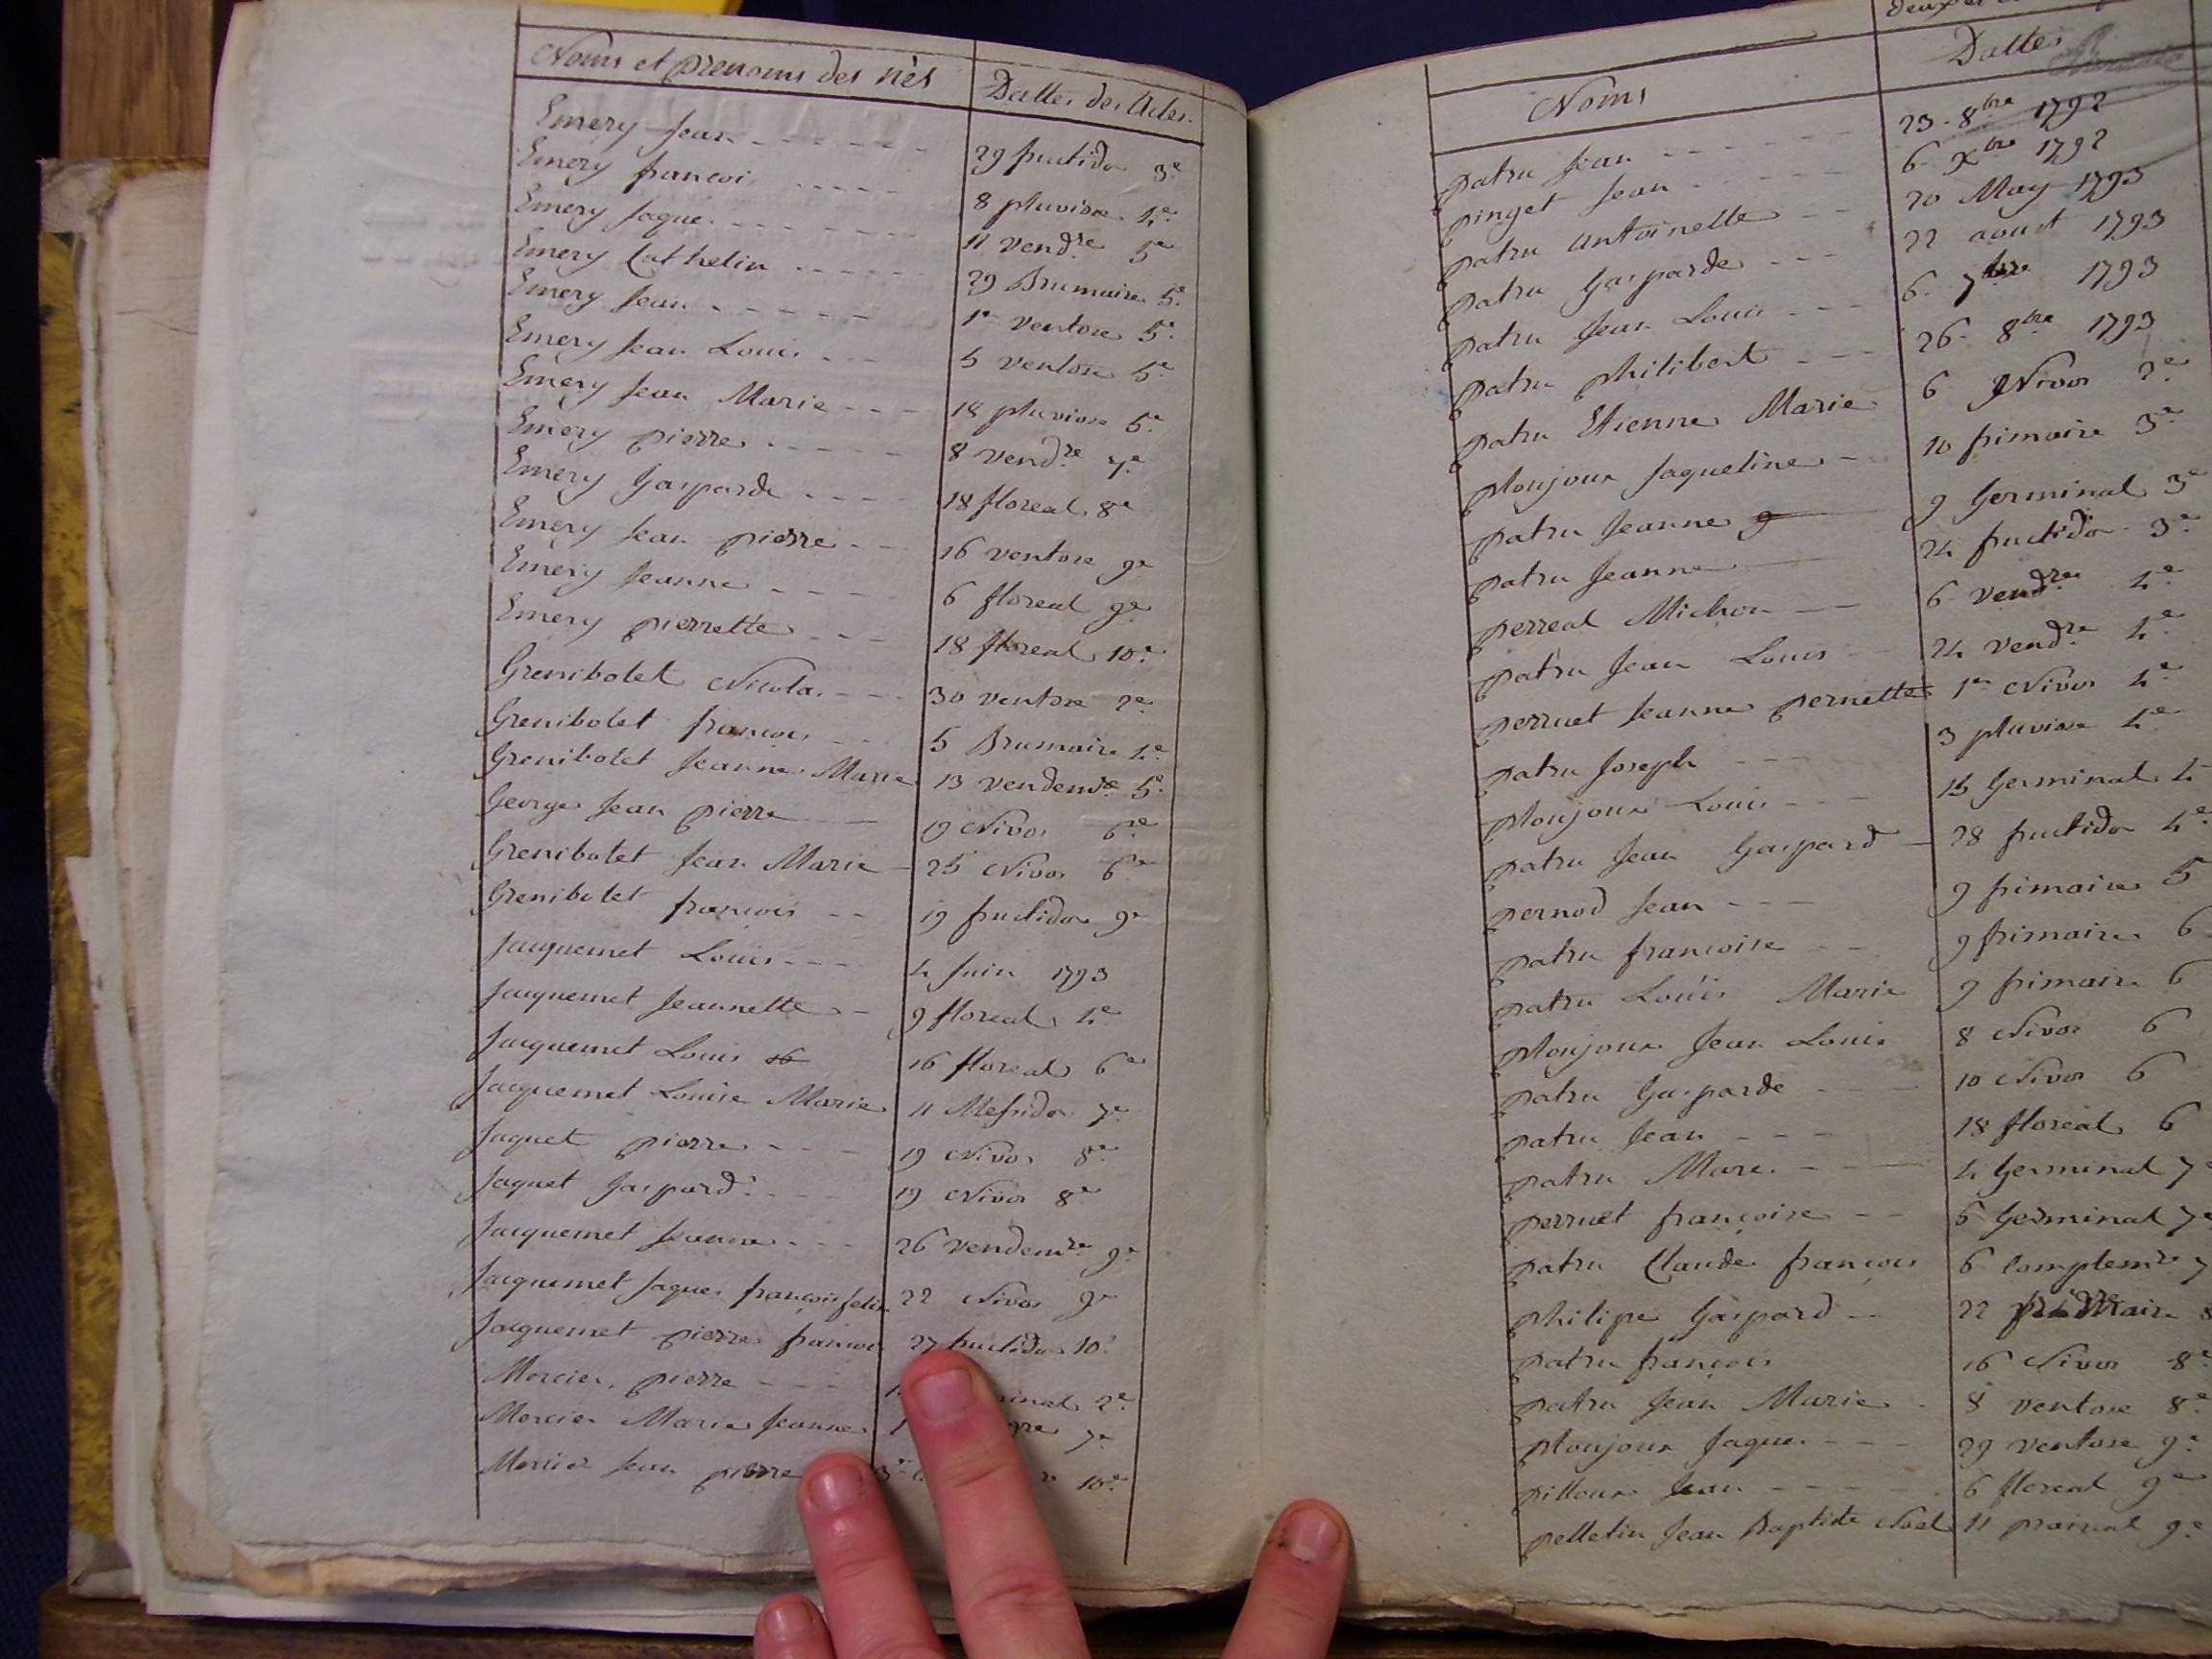 Noms et prenoms des nés | Dattes des Actes
Emery Jean | 29 fructidor 3e
Emery françoi | 8 pluviose 4e
Emery Jaque | 11 vendre 5e
Emery Cathelin | 29 Brumaire 5e
Emery Jean | 1er ventose 5e
Emery Jean Louis | 5 ventose 5e
Emery Jean Marie | 18 pluviose 5e
Emery pierre | 8 vendre 7e
Emery Gasparde | 18 floreal 8e
Emery Jean pierre | 16 ventose 9e
Emery Jeanne | 6 floreal 9e
Emery pierrette | 18 floreal 10e
Grenibolet Nicolas | 30 ventose 2e
Grenibolet françois | 5 Brumaire 4e
Grenibolet Jeanne Marie | 13 vendemre 5e
George Jean pierre | 19 Nivos 6e
Grenibolet Jean Marie | 25 Nivos 6e
Grenibolet françois | 19 fructidor 9e
Jacquemet Louis | 4 Juin 1793
Jacquemet Jeannette | 9 floreal 4e
Jacquemet Louis 16 | 16 floreal 6e
Jacquemet Louise Marie | 11 Messidor 7e
Jaquet pierre | 19 Nivos 8e
Jaquet Gaspard | 19 Nivos 8e
Jacquemet Jeanne | 26 vendemre 9e
Jacquemet Jaques françois felix | 22 Nivos 9e
Jacquemet pierre françoi | 27 fructidor 10e
Mercier pierre | 2e
Mercier Marie Jeanne | 7e
Mercier Jean pierre | 10e
Noms | Dattes
patru Jean | 23 8bre 1792
pinget Jean | 6 Xbre 1792
patru antoinette | 20 May 1793
patru Gasparde | 22 aoust 1793
patru Jean Louis | 6 7bre 1793
patru philibert | 26 8bre 1793
patru Etienne Marie | 6 Nivos 2e
ploujoux Jaqueline | 10 frimaire 3e
patru Jeanne 9 | 9 Germinal 3e
patru Jeanne | 24 fructidor 3e
perreal Michon | 6 vendre 4e
patru Jean Louis | 24 vendre 4e
perruet Jeanne pernette | 1er Nivos 4e
patru Joseph | 3 pluviose 4e
ploujoux Louis | 15 Germinal 4
patru Jean Gaspard | 28 fructidor 4e
pernod Jean | 9 frimaire 5
patru françoise | 9 frimaire 6
patru Louis Marie | 9 frimaire 6
ploujoux Jean Louis | 8 Nivos 6
patru Gasparde | 10 Nivos 6
patru Jean | 18 floreal 6
patru Marc | 4 Germinal 7e
perruet françoise | 6 Germinal 7e
patru Claude françois | 6 complemre 7
philipe Gaspard | 22 8
patru françois | 16 Nivos 8e
patru Jean Marie | 8 ventose 8e
ploujoux Jaque | 29 ventose 9e
pilloux Jean | 6 floreal 9e
pelletin Jean Baptiste Noel | 11 prairial 9e